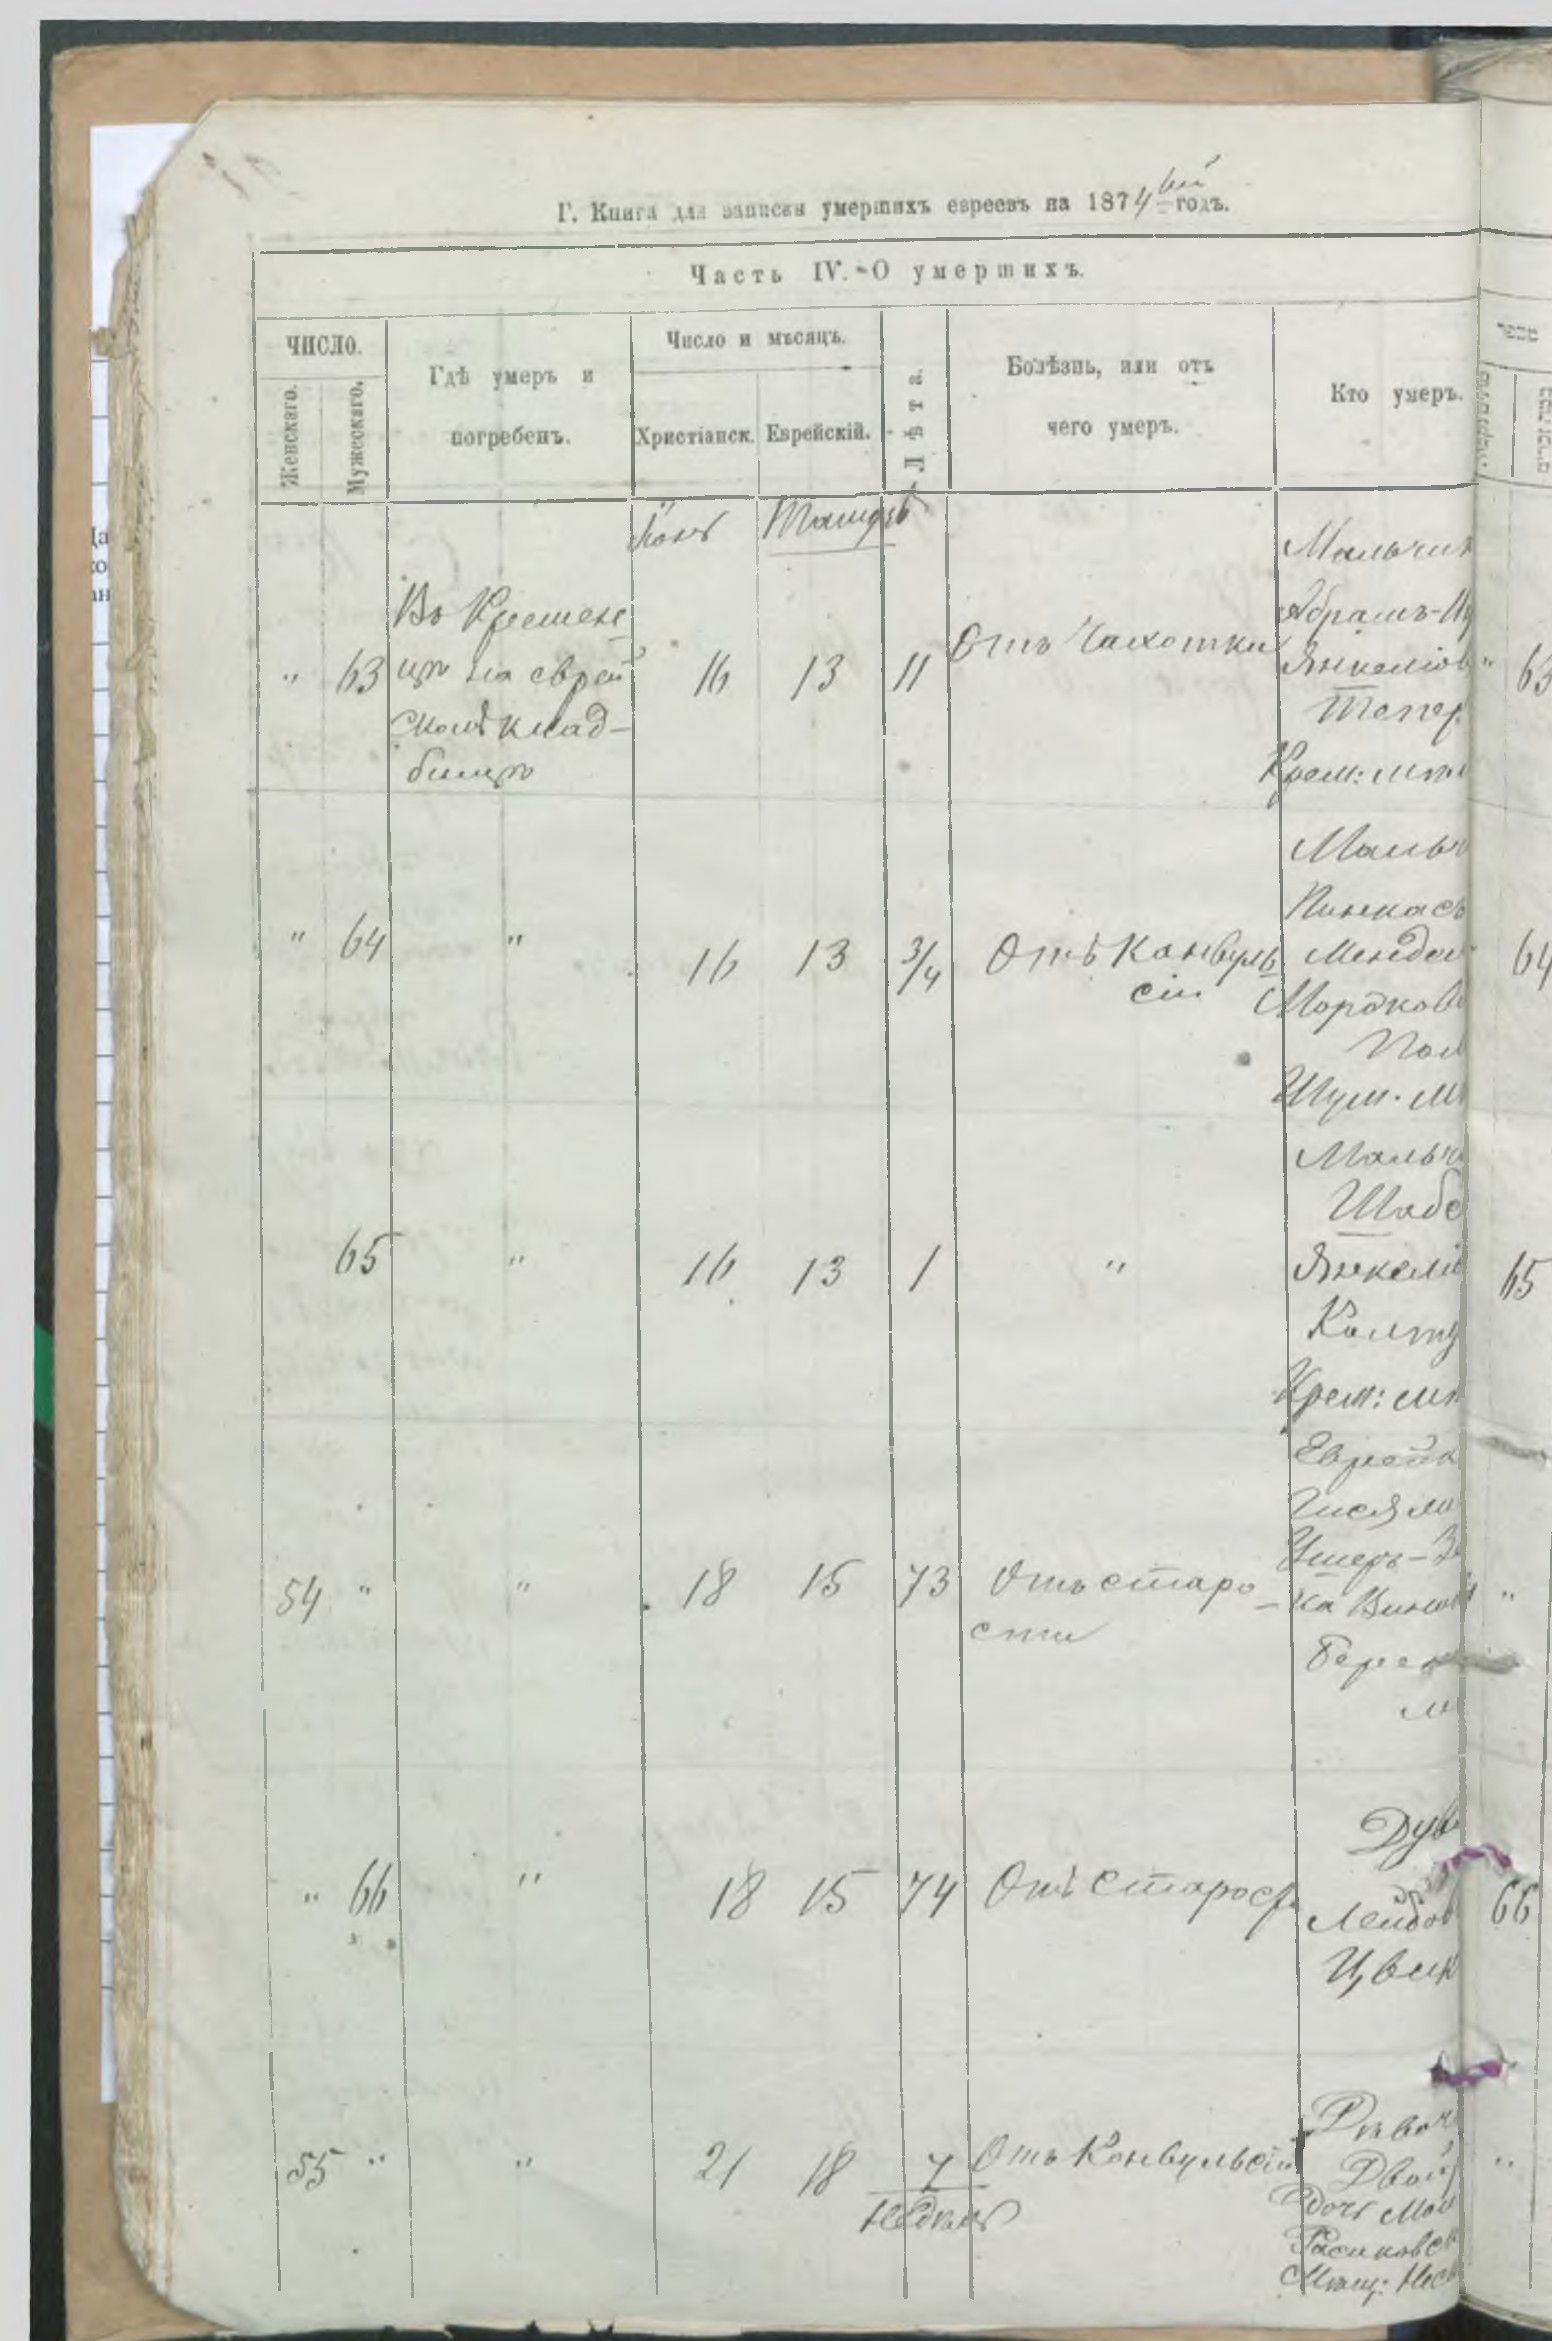 Г. Книга для записки умершихъ евреевъ на 1874 ый годъ.
Часть IV.-О умершихъ.
ЧИСЛО.
Женскаго.
Мужескаго.
Гдѣ умеръ и
погребенъ.
Число и мѣсяцъ.
Христіанск.
Еврейскій.
Лѣта.
Болѣзнь, или отъ
чего умеръ.
Кто умеръ.
Іюнь Тамузъ
" 63
Въ Кремене
цѣ на еврей
скомъ клад-
бищѣ
16 13 11
Отъ Чахотки
Мальчик
Абрамъ-Иц
Янкеліов
Тепер
Крем: мѣщ
" 63
" 64 " 16 13 3/4
Отъ Конвуль
сіи
Мальч
Пинкасъ
Мендел
Мордков
Пол
Шум. м
64
65 " 16 13 1 "
Мальч
Шабс
Янкелі
Колту
Крем: мѣ
65
54 " " 18 15 73
Отъ старо-
сти
Еврейк
Умеръ-З
Берез
"
" 66 " 18 15 74
Отъ старос
Дув
Лейбов
Цвик
66
55 " " 21 18 7
недѣль
Отъ Конвульсіи
Двой
дочь Мош
Расиковск
Мѣщ:
"